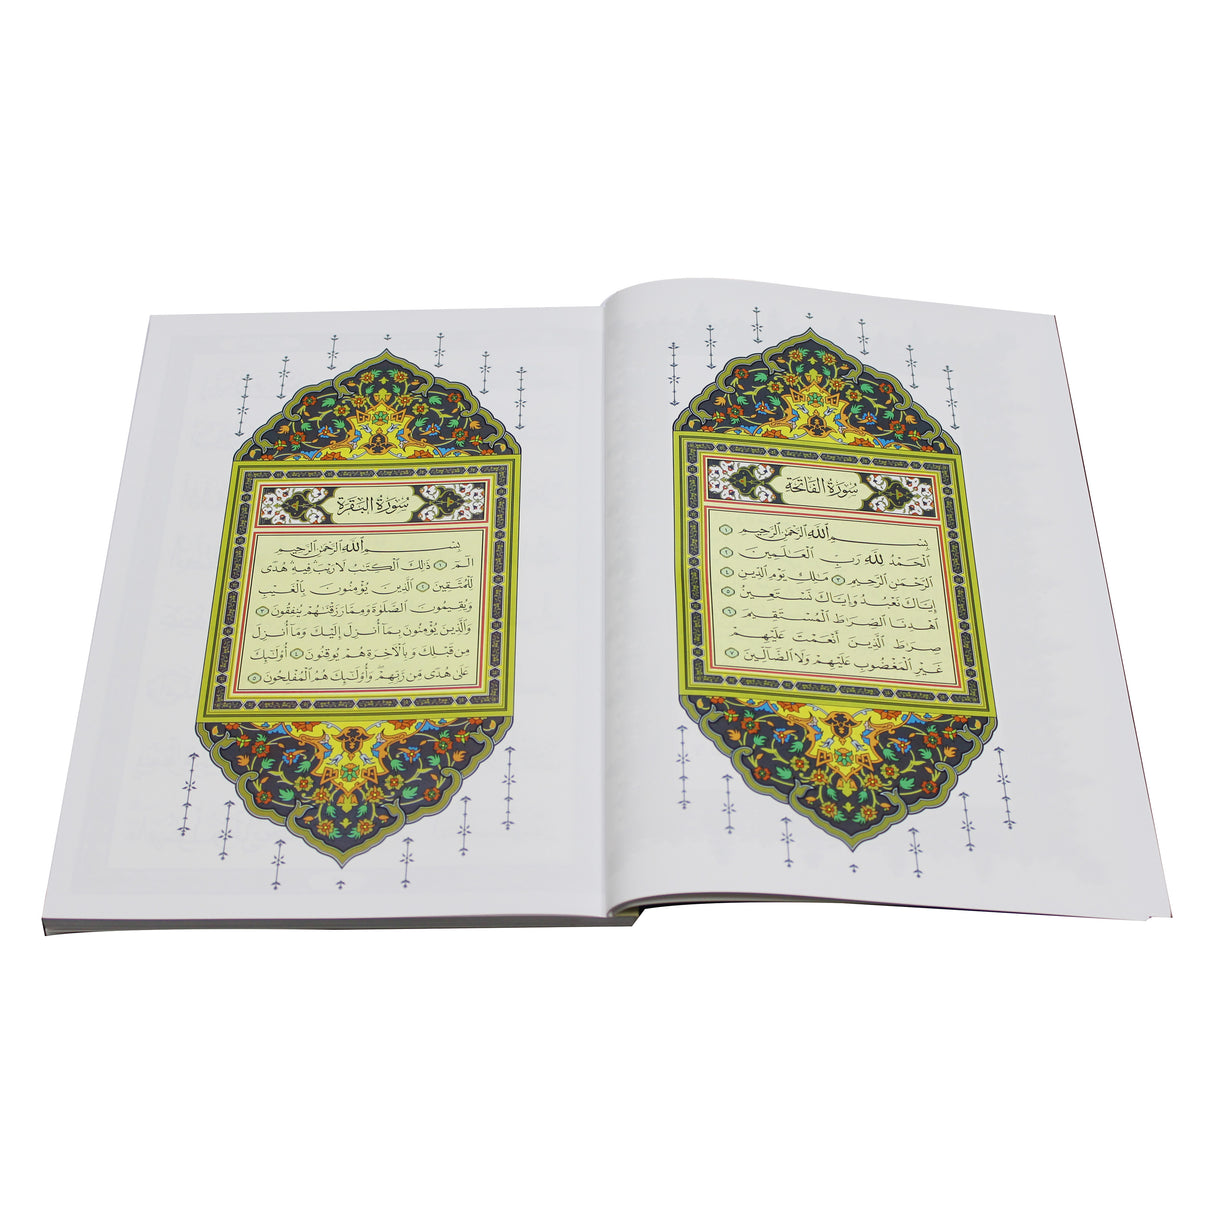 سُورَةُ الفَاتِحَةِ
بِسْمِ اللَّهِ الرَّحْمَٰنِ الرَّحِيمِ ١
الْحَمْدُ لِلَّهِ رَبِّ الْعَٰلَمِينَ ٢
الرَّحْمَٰنِ الرَّحِيمِ ٣ مَٰلِكِ يَوْمِ الدِّينِ ٤
إِيَّاكَ نَعْبُدُ وَإِيَّاكَ نَسْتَعِينُ ٥
اهْدِنَا الصِّرَاطَ الْمُسْتَقِيمَ ٦
صِرَاطَ الَّذِينَ أَنْعَمْتَ عَلَيْهِمْ
غَيْرِ الْمَغْضُوبِ عَلَيْهِمْ وَلَا الضَّالِّينَ ٧
سُورَةُ البَقَرَةِ
بِسْمِ اللَّهِ الرَّحْمَٰنِ الرَّحِيمِ
الم ١ ذَٰلِكَ الْكِتَٰبُ لَا رَيْبَ فِيهِ هُدًى
لِلْمُتَّقِينَ ٢ الَّذِينَ يُؤْمِنُونَ بِالْغَيْبِ
وَيُقِيمُونَ الصَّلَوٰةَ وَمِمَّا رَزَقْنَٰهُمْ يُنْفِقُونَ ٣
وَالَّذِينَ يُؤْمِنُونَ بِمَا أُنْزِلَ إِلَيْكَ وَمَا أُنْزِلَ
مِنْ قَبْلِكَ وَبِالْآخِرَةِ هُمْ يُوقِنُونَ ٤ أُولَٰئِكَ
عَلَىٰ هُدًى مِنْ رَبِّهِمْ وَأُولَٰئِكَ هُمُ الْمُفْلِحُونَ ٥